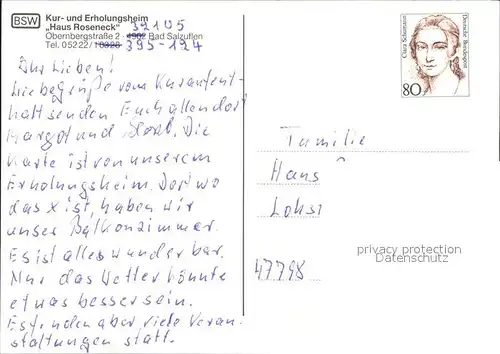 BSW Kur- und Erholungsheim
"Haus Roseneck" 32105
Obernbergstraße 2 · 4902 Bad Salzuflen
Tel. 05222/10328 395-124
Clara Schumann
Deutsche Bundespost
80
Ihr Lieben!
Liebe Grüße vom Kuraufent-
halt senden Euch allen dort
Margot und. Die
Karte ist von unserem
Erholungsheim. Dort wo
das x ist, haben wir
unser Balkonzimmer.
Es ist alles wunderbar.
Nur das Wetter könnte
etwas besser sein.
Es finden aber viele Veran-
staltungen statt.
Familie
Hans
47798
privacy protection
Datenschutz